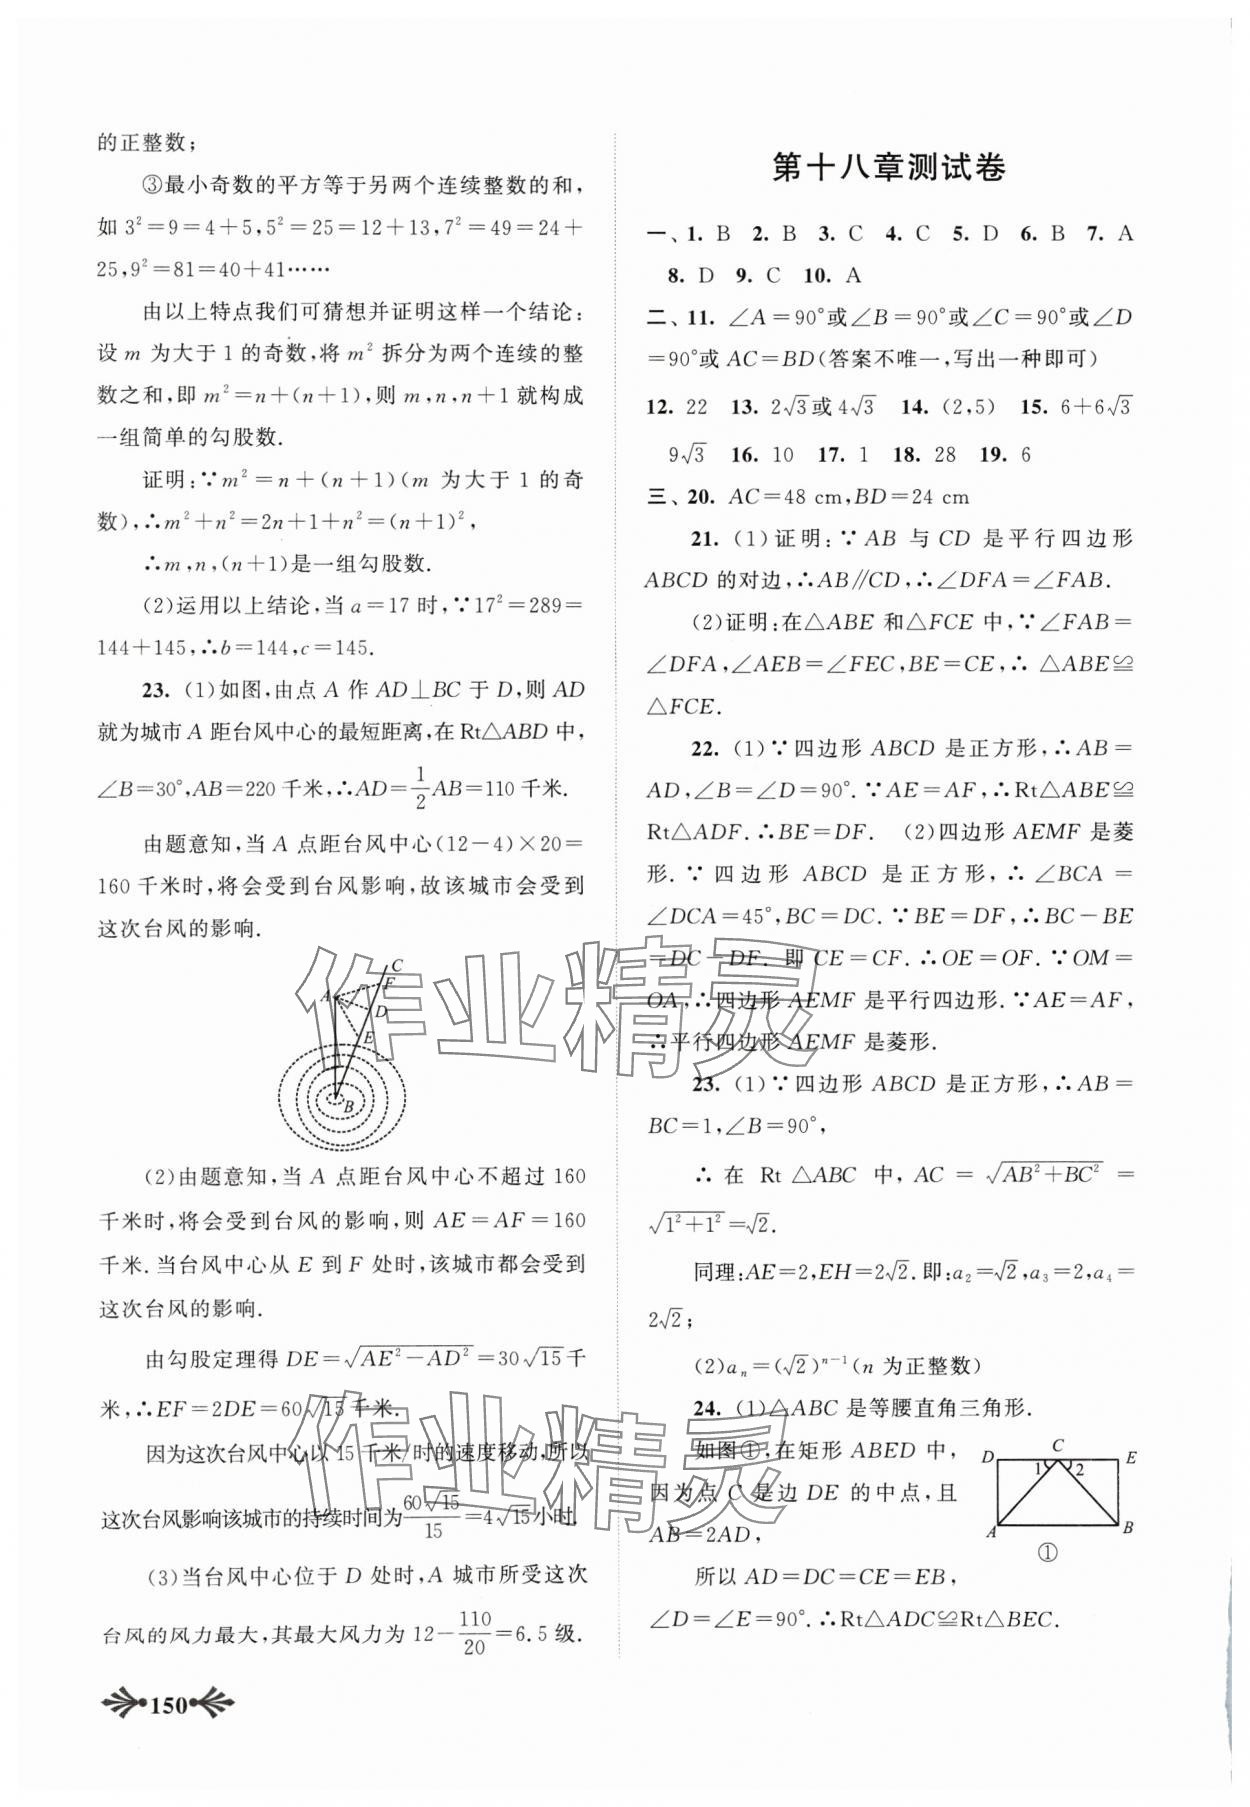 的正整数；
③最小奇数的平方等于另两个连续整数的和，
如 3²=9=4+5,5²=25=12+13,7²=49=24+
25,9²=81=40+41……
由以上特点我们可猜想并证明这样一个结论：
设 m 为大于 1 的奇数，将 m² 拆分为两个连续的整
数之和，即 m²=n+(n+1)，则 m,n,n+1 就构成
一组简单的勾股数.
证明：∵m²=n+(n+1)(m 为大于 1 的奇
数)，∴m²+n²=2n+1+n²=(n+1)²，
∴m,n,(n+1)是一组勾股数.
(2)运用以上结论，当 a=17 时，∵17²=289=
144+145，∴b=144,c=145.
23. (1)如图，由点 A 作 AD⊥BC 于 D，则 AD
就为城市 A 距台风中心的最短距离，在 Rt△ABD 中，
∠B=30°,AB=220 千米，∴AD=1/2AB=110 千米.
由题意知，当 A 点距台风中心(12-4)×20=
160 千米时，将会受到台风影响，故该城市会受到
这次台风的影响.
C
F
A
D
E
B
(2)由题意知，当 A 点距台风中心不超过 160
千米时，将会受到台风的影响，则 AE=AF=160
千米.当台风中心从 E 到 F 处时，该城市都会受到
这次台风的影响.
由勾股定理得 DE=√(AE²-AD²)=30√15千
米，∴EF=2DE=60√15千米.
因为这次台风中心以 15 千米/时的速度移动，所以
这次台风影响该城市的持续时间为60√15/15=4√15小时.
(3)当台风中心位于 D 处时，A 城市所受这次
台风的风力最大，其最大风力为 12-110/20=6.5 级.
150
第十八章测试卷
一、1. B 2. B 3. C 4. C 5. D 6. B 7. A
8. D 9. C 10. A
二、11. ∠A=90°或∠B=90°或∠C=90°或∠D
=90°或 AC=BD(答案不唯一，写出一种即可)
12. 22 13. 2√3或4√3 14. (2,5) 15. 6+6√3
9√3 16. 10 17. 1 18. 28 19. 6
三、20. AC=48 cm,BD=24 cm
21. (1)证明：∵AB 与 CD 是平行四边形
ABCD 的对边，∴AB∥CD，∴∠DFA=∠FAB.
(2)证明：在△ABE 和△FCE 中，∵∠FAB=
∠DFA,∠AEB=∠FEC,BE=CE，∴△ABE≌
△FCE.
22. (1)∵四边形 ABCD 是正方形，∴AB=
AD,∠B=∠D=90°.∵AE=AF，∴Rt△ABE≌
Rt△ADF.∴BE=DF. (2)四边形 AEMF 是菱
形.∵四边形 ABCD 是正方形，∴∠BCA=
∠DCA=45°,BC=DC.∵BE=DF，∴BC-BE
=DC-DF. 即 CE=CF.∴OE=OF.∵OM=
OA，∴四边形 AEMF 是平行四边形.∵AE=AF，
∴平行四边形 AEMF 是菱形.
23. (1)∵四边形 ABCD 是正方形，∴AB=
BC=1,∠B=90°，
∴在 Rt△ABC 中，AC=√(AB²+BC²)=
√(1²+1²)=√2.
同理：AE=2,EH=2√2.即：a₂=√2,a₃=2,a₄=
2√2；
(2)aₙ=(√2)ⁿ⁻¹(n 为正整数)
24. (1)△ABC 是等腰直角三角形.
如图①，在矩形 ABED 中，
因为点 C 是边 DE 的中点，且
AB=2AD，
所以 AD=DC=CE=EB，
∠D=∠E=90°.∴Rt△ADC≌Rt△BEC.
D C E
1 2
A B
①
作业精灵
作业精灵